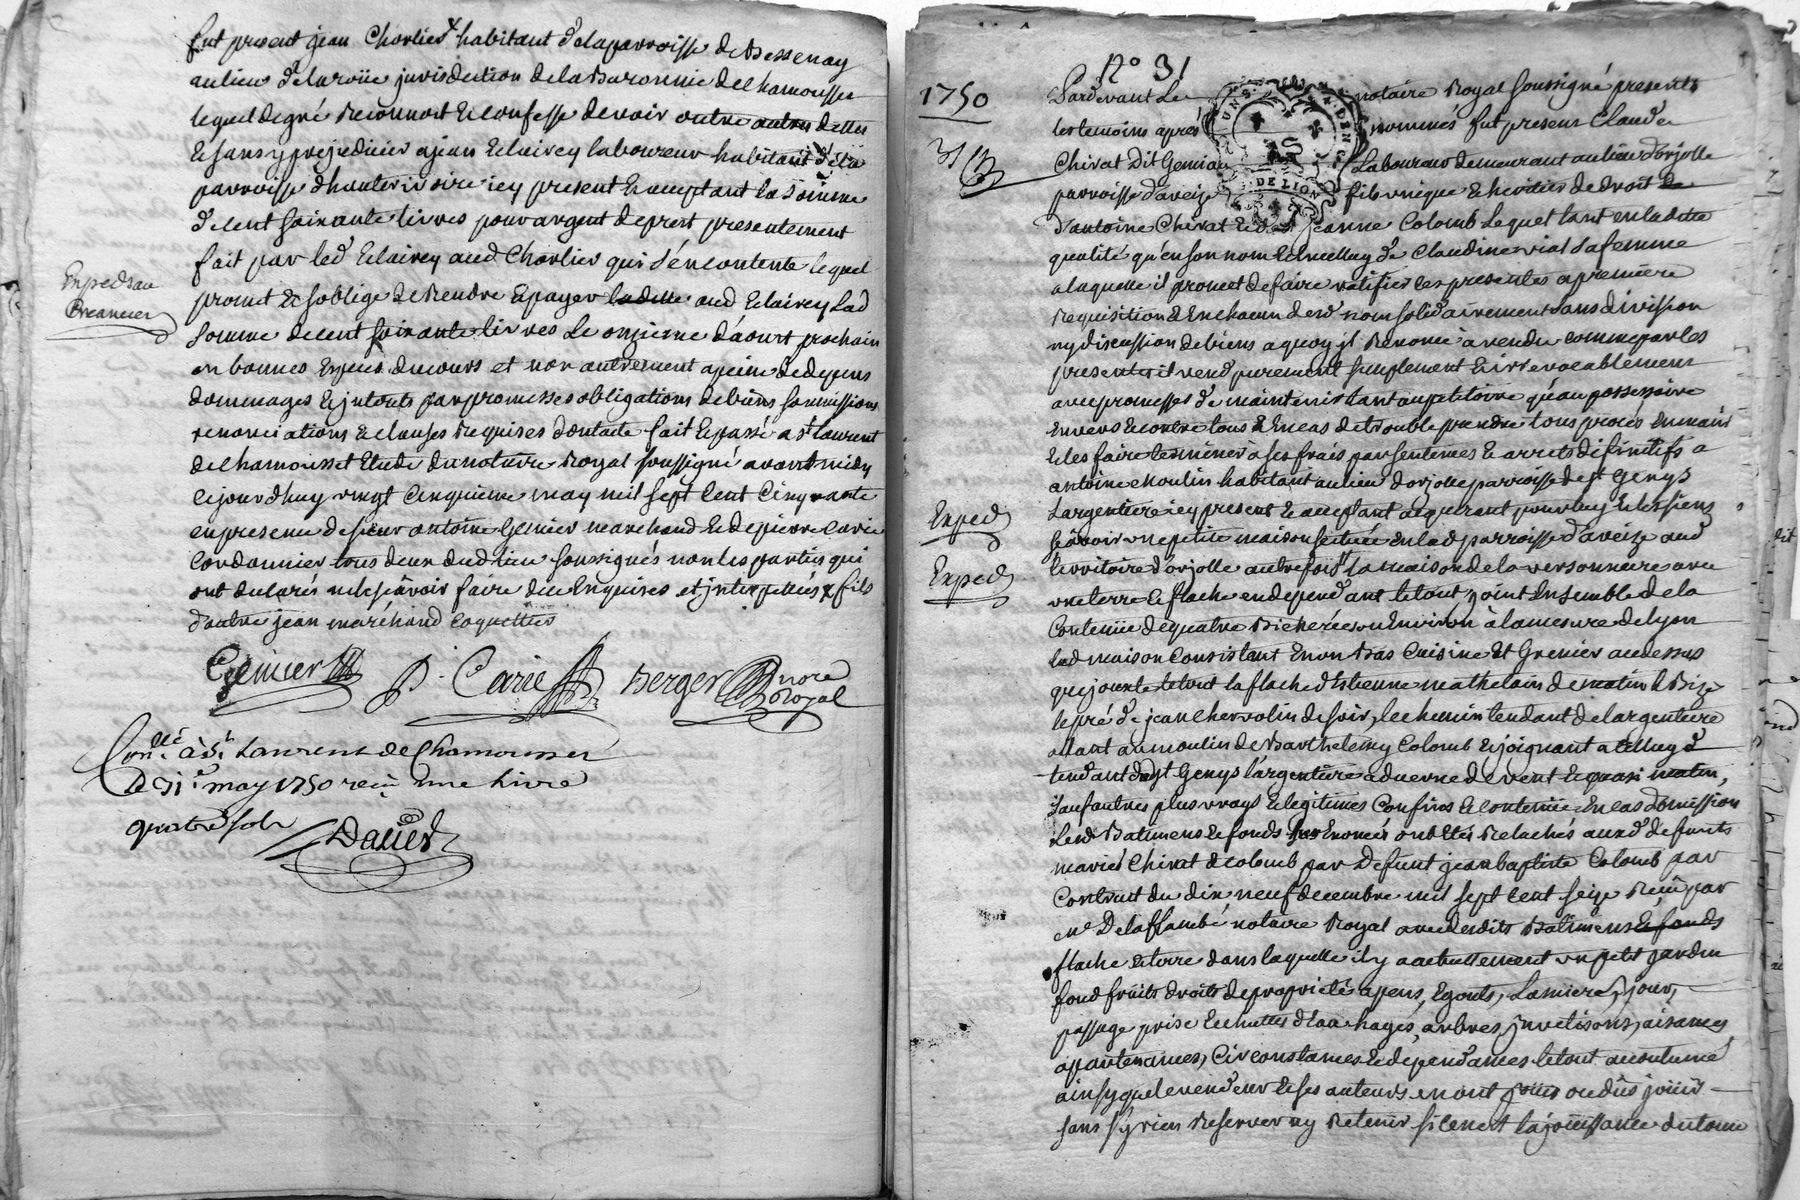 fut present jean Charlier x habitant de la parroisse de Bessenay
au lieu de la roüe jurisdiction de la Baronnie de chamousset
lequel de gré Reconnoit & confesse devoir outre autres dettes
& sans y prejudicier a jean Eclairey laboureur habitant de la
parroisse d'hauterivoire icy present & acceptant la somme
de cent soixante livres pour argent de prest presentement
fait par led Eclairey aud Charlier qui s'en contente lequel
promet & soblige de Rendre & payer ladette aud Eclairey lad
somme de cent soixante livres Le onzieme d'aoust prochain
en bonnes Especes du cours et non autrement a peine de depens
dommages & jnterests par promesses obligations de biens soumissions
renonciations & clauses Requises dont acte fait & passé a st Laurent
de chamousset Etude du notaire Royal soussigné avant midy
cejourdhuy vingt Cinquieme may mil sept Cent Cinquante
en presence de sieur antoine Genier marchand & de pierre Carie
Cordonnier tous deux dud lieu soussignés non les parties qui
ont declarés ne le sçavoir faire de ce Enquises et jnterpellées x fils
d'autre jean marchand Coquettier
Exped au
Creancier
Genier P. Carie Berger nore
Royal
Con.llé à St Laurent de Chamousset
Le 31e may 1750 reçu une Livre
quatre sols
Dalier
No 31
1750
31
Pardevant Le notaire Royal soussigné presents
les temoins après nommés fut present Claude
Chirat dit Genian Laboureur demeurant au lieu d'orjolle
parroisse d'aveize fils unique & heritier de droit de
d'antoine Chirat & de Jeanne Colomb Lequel tant en ladite
qualité qu'en son nom & celluy de Claudine vial sa femme
a laquelle il promet de faire ratifier les presentes a premiere
Requisition & En chacun desd noms solidairement sans division
ny discussion de biens a quoy jl Renonce à vendu comme par les
presentes il vend purement simplement & irrevocablement
avec promesse de maintenir tant au petitoire qu'au possessoire
Envers & contre tous & En cas de trouble prendre tous procès En main
& les faire terminer à ses frais par sentences & arrets difinitifs a
antoine moulin habitant au lieu d'orjolle parroisse de st Genys
Largentiere icy present & acceptant acquerant pour luy & les siens
Exped
Sçavoir une petite maison scituée En lad parroisse d'aveize aud
territoire d'orjolle autrefois la maison de la versonniere avec
Exped
une terre & flache en dependant le tout joint Ensemble de la
Contenüe de quatre Bicherées ou Environ à la mesure de Lyon
lad maison Consistant En un Bas Cuisine Et Grenier au dessus
qui jouxte le tout la flache d'Estienne mathelain de matin & Bize
le pré de jean Chervolin de soir, le chemin tendant de largentiere
allant au moulin de Barthelemy Colomb & joignant a celluy
tendant dudt st Genys l'argentiere a duerne de vent & quasi matin,
sauf autres plus vrays & legitimes Confins & contenüe En cas d'omission
lesd Batimens & fonds sus Enoncés ont Etés Relachés auxd defunts
mariés Chirat & Colomb par Defunt jean baptiste Colomb par
Contract du dix neuf decembre mil sept cent seize Reçu par
me Delaflambé notaire Royal avec lesdits Batimens & fonds
flache & terre dans laquelle il y a actuellement un petit jardin
fond fruits droits de proprieté apens, Egouts, Lumiere, jour,
passage prise & chuttes d'eau hayes, arbres, jnvetisons, aisances
apartenances, Circonstances & dependances le tout accoutumé
ainsy que le vendeur & ses auteurs en ont jouis ou dûs joüir
sans s'y rien Reserver ny Retenir si ce n'est la joüissance du tout